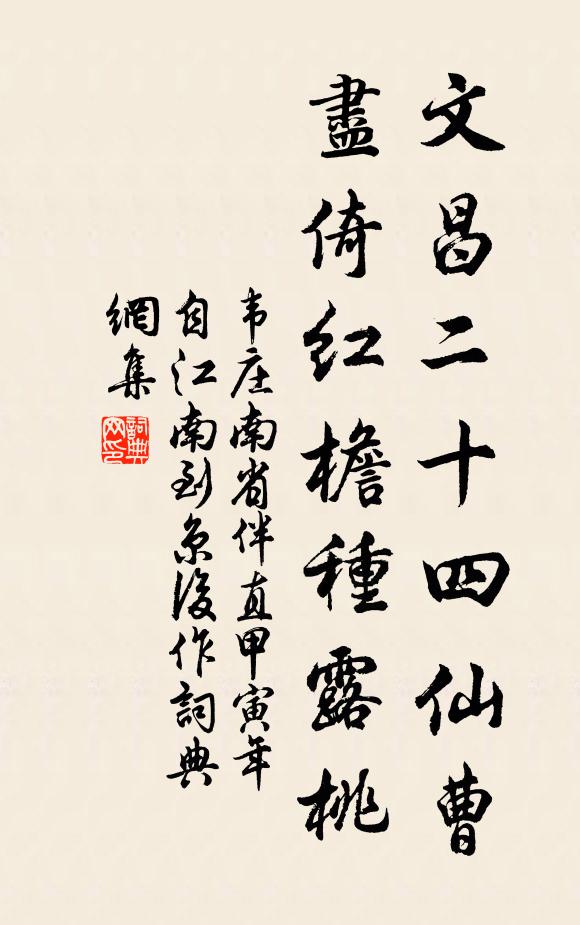 文昌二十四仙曹
盡倚紅檐種露桃
韦庄南省伴直甲寅年
自江南到京後作詞典
網集
詞典
网印